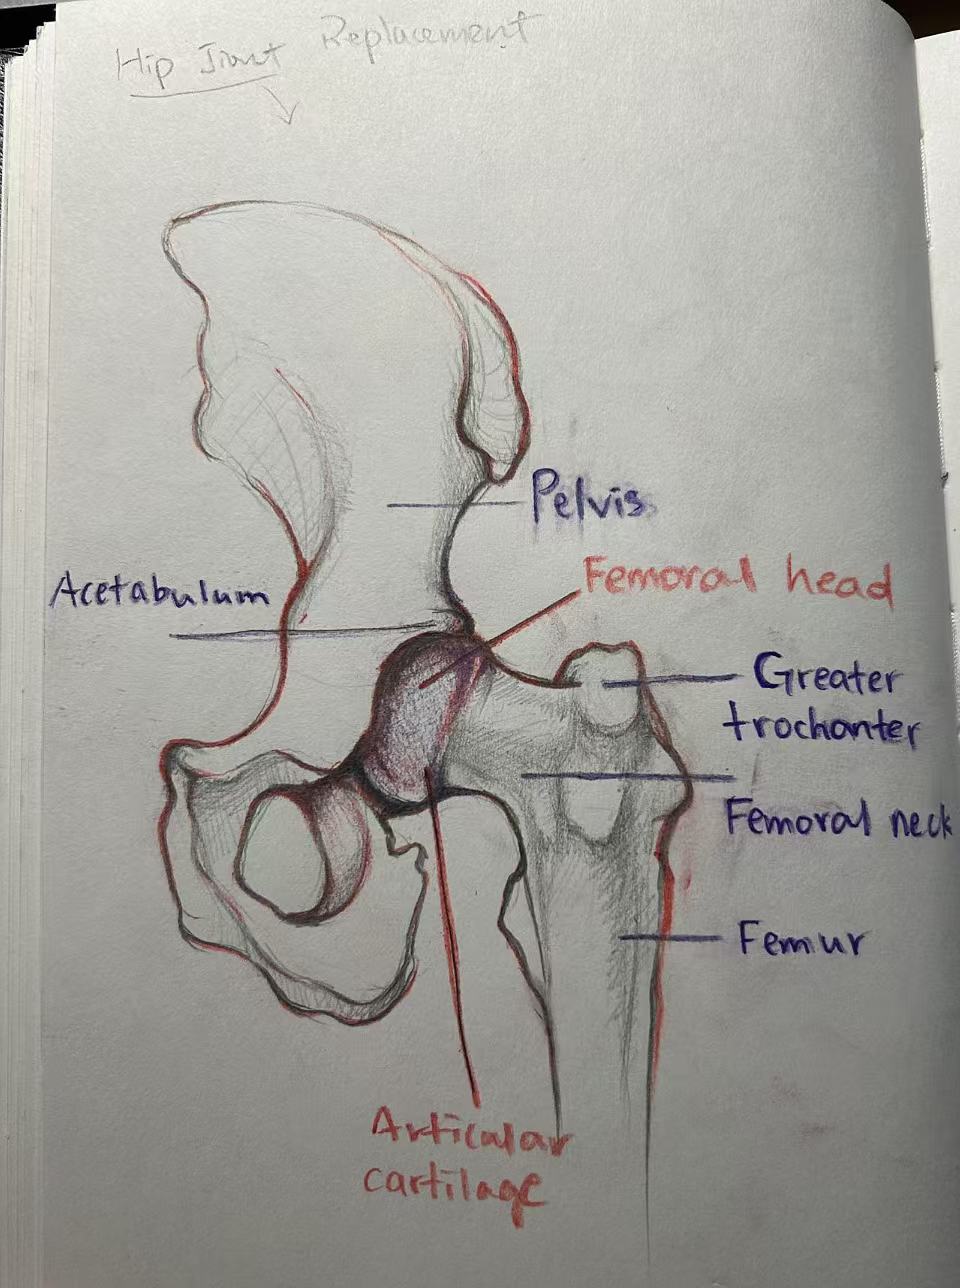 Hip Jiont Replacement
Pelvis
Acetabulum
Femoral head
Greater
trochanter
Femoral neck
Femur
Articular
cartilage